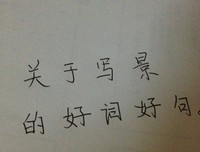 关于写景
的好词好句。